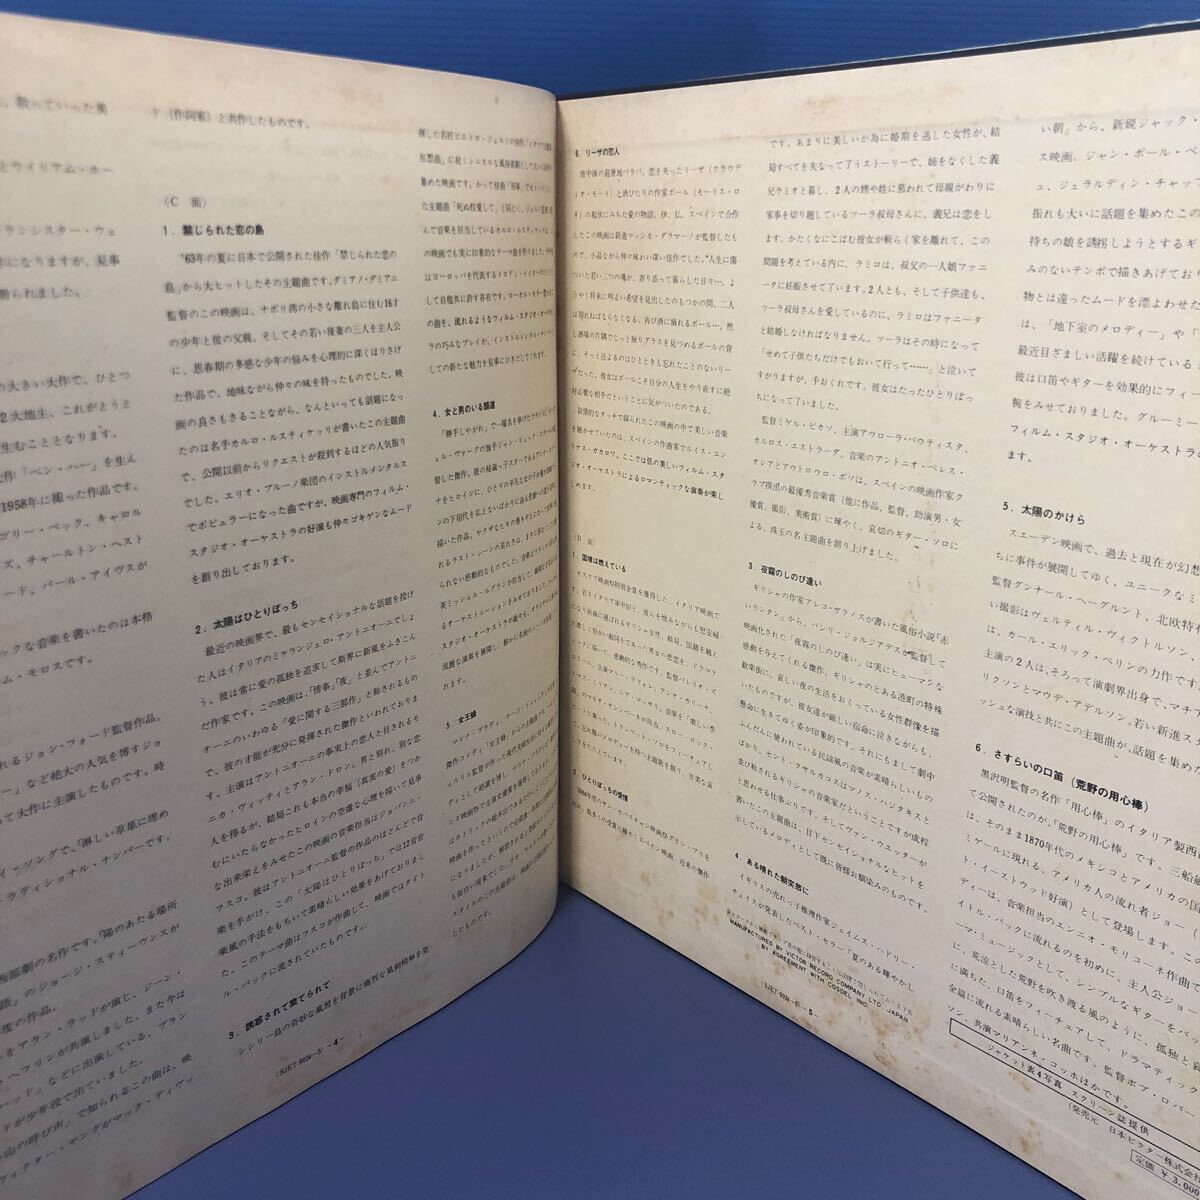 、散っていった美
とウイリアム・ホー
ランシスター・ウェ
作になりますが、見事
断られました。
の大きい大作で、ひとつ
2大地主、これがとうと
生むこととなります。
大作「ベン・ハー」を生ん
1958年に撮った作品です。
ゴリー・ペック、キャロル
ズ、チャールトン・ヘスト
ード、バール・アイヴスが
ックな音楽を書いたのは本格
ム・モロスです。
れるジョン・フォード監督作品。
ー」など絶大の人気を博すジョ
て大作に主演したものです。時
イ・ソングで、「淋しい草原に埋め
ラディショナル・ナンバーです。
西部劇の名作です。「陽のあたる場所
語」のジョージ・スティーヴンスが
度の作品。
ンをアラン・ラッドが演じ、ジーン・
・ヘフリンが共演しました。また今は
ヘッド」などに出演している、ブラン
ドが少年役で出ていました。
山の呼び声」で知られるこの曲は、映
ヴィクター・ヤングがマック・ディヴッ
ド（作詞家）と共作したものです。
〈C 面〉
1．禁じられた恋の島
'63年の夏に日本で公開された佳作「禁じられた恋の
島」から大ヒットしたその主題曲です。ダミアノ・ダミアニ
監督のこの映画は、ナポリ湾の小さな離れ島に住む16才
の少年と彼の父親、そしてその若い後妻の三人を主人公
に、思春期の多感な少年の悩みを心理的に深くほりさげ
た作品で、地味ながら仲々の味を持ったものでした。映
画の良さもさることながら、なんといっても話題になっ
たのは名手カルロ・ルスティケッリが書いたこの主題曲
で、公開以前からリクエストが殺到するほどの人気振り
でした。エリオ・ブルーノ楽団のインストルメンタルス
でポピュラーになった曲ですが、映画専門のフィルム・
スタジオ・オーケストラの好演も仲々ゴキゲンなムード
を創り出しております。
2．太陽はひとりぼっち
最近の映画界で、最もセンセイショナルな話題を投げ
た人はイタリアのミケランジェロ・アントニオーニでしょ
う。彼は常に愛の孤独を追求して斯界に新風をふきこん
だ作家です。この映画は、「情事」「夜」と並んでアントニ
オーニのいわゆる「愛に関する三部作」と称されるもの
で、彼の才能が充分に発揮された傑作といわれておりま
す。主演はアントニオーニの事実上の恋人と目されるモ
ニカ・ヴィッティとアラン・ドロン。男と別れ、別な恋
人を得るが、結局これも本当の幸福（真実の愛）をつか
むにいたらなかったヒロインの空虚な心理を描いて見事
な出来栄えをみせたこの映画の音楽担当はジョバンニ・
フスコ。彼はアントニオーニ監督の作品のほとんどで音
楽を手がけ、この「太陽はひとりぼっち」では12音音
楽風の手法をもちいて素晴らしい効果をあげておりまし
た。このテーマ曲はフスコが作曲して、映画ではタイト
ル・バックに流されていたものです。
3．誘惑されて棄てられて
シシリー島の奇妙な風習を背景に痛烈な風刺精神を発
(SJET-9024〜5) −4−
揮した名匠ピエトロ・ジェルミの快作。「イタリア式離婚
狂想曲」に続くシニカルな風俗喜劇として大いに
集めた映画です。かって佳曲「刑事」で大ヒット
た主題曲「死ぬ程愛して」と同じく、ジェルミ監督と組
んで音楽を担当しているカルロ・ルスティケッリはこ
の映画でも実に印象的なテーマ曲を作りました。今や
はヨーロッパを代表するメロディ・メイカーの代
として自他共に許す存在です。ローカル・カラー豊かな
の曲を、流れるようなフィルム・スタジオ・オーケスト
ラの巧みなプレイが、インストルメント・ナンバーとし
ての新たな魅力を見事にひきだしてくれます。
4．女と男のいる舗道
「勝手しやがれ」で一躍名を挙げた
ェル・ヴァーグの旗手ジャン・リュック・ゴダールの
した傑作。彼の秘蔵っ子スターであるアンナ・カリー
ナをヒロインに、ひとりの平凡な女の子が
の下宿代を払えないばかりに
描いた作品。
れるラスト・シーンの哀れさは、
られない感動的なものでした。音楽は
英ミッシェル・ルグランが担当して、
るオーケストレーションをみせておりました。フィルム・
スタジオ・オーケストラの面々も、
流麗な演奏を展開し、
れます。
5．女王蜂
マリナ・ブラディ、ウーゴ・トニャッツィ主演の
コメディ「女王蜂」からの主題曲です。
ェルリ監督が作った現代夫婦生活に対する
ディとして絶讃を博し、マリナ・ブラディは
ンヌ映画祭で主演女優賞を獲得しております。
はカトリックの総本山であるだけに
映画を作ったというので完成後一時
にあいましたが、解禁されると
も面白い現象でした。テナ・サックス
スタイルのこの主題曲は、映画が
したものです。
6．リーザの恋人
地中海の避暑地パラバ。恋を失ったリーザ（クラウデ
ィオ・モーリ）と酒びたりの作家ポール（モーリス・ロ
ネ）の起伏にみちた愛の物語。伊、仏、スペインで合作
したこの映画は新進マッシモ・ダラマーノが監督したも
ので、小品ながら仲々味わい深い佳作でした。"人生に傷
ついた若い二つの魂が、寄り添って暮らした日々…、よ
うやく将来に明い希望を見出したのもつかの間、二人
は別れねばならなくなる。再び酒に溺れるポール…。然
し酒場の片隅でじっと独りグラスを見つめるポールの背
に、そっと近よるのはひとときも忘れたことのないリー
ザだった。彼女はポールこそ自分の人生をやり直すに絶
対必要な相手だということに気がついたのである。
叙情的なタッチで綴られたこの映画の中で美しい音楽
を聴かせていたのは、スペインの作曲家でルイス・エン
リケス・ガカロワ。ここでは弦の美しいフィルム・スタ
ジオ・オーケストラによるロマンティックな演奏が楽し
めます。
〈D 面〉
1．国境は燃えている
モスクワ映画祭特別金賞を獲得した、イタリア映画で
す。若きイタリア軍中尉と、彼らを慰みながらも慰安婦
になり前線に運ばれるギリシャ女性。結局、国籍を越え
た激しく根かい敵同士であった男女の悲恋を、ドラマテ
ィークに描いた、感動的な秀作です。監督バレリオ・ズ
ルリーニ、主演マリー・ラフォレ、アンナ・カリーナ、
トマス・ミリアン、レア・マッサリ。音楽を「激しい季
節」のマリオ・ナシンベーネが担当。スロー・ロック・
ビートに乗った、トランペット・ソロをフィーチュアし
た哀れに悲しいメロディーを持った主題歌を創り、甘美な哀
しみをたたえています。
2．ひとりぼっちの愛情
1964年度のサン・セバスチャン映画祭グラン・プリを
始め、数多くの受賞に輝くスペイン映画、近来の傑作
です。あまりに美しいが為に婚期を逃した女性が、結
局すべてを失なって了うストーリーで、姉をなくした義
兄ラミオと暮し、2人の甥や姪に慕われて母親がわりに
家事を切り廻しているツーラ叔母さんに、義兄は恋をし
ます。かたくなにこばむ彼女が斬らく家を離れて、この
問題を考えている内に、ラミロは、叔父の一人娘ファニ
ータに妊娠させて了います。2人とも、そして子供達も、
ツーラ叔母さんを愛しているのに、ラミロはファニータ
と結婚しなければなりません。ツーラはその時になって
「せめて子供たちだけでもおいて行って……」と泣いて
すがりますが、手おくれです。彼女はたったひとりぼっ
ちになって了いました。
監督ミゲル・ピカソ、主演アウローラ・バウティスタ、
カルロス・エストラーダ。音楽のアントニオ・ペレス・
オレアとアウトロウロ・ポソは、スペインの映画作家ク
ラブ撰出の最優秀音楽賞（他に作品、監督、助演男・女
優賞、撮影、美術賞）に輝やく、哀切のギター・ソロに
よる、珠玉の名主題曲を創り上げました。
3．夜霧のしのび逢い
ギリシャの作家アレコ・ガラノスが書いた風俗小説「赤
いランタン」から、バシリ・ジョルジアデスが監督して
映画化された「夜霧のしのび逢い」は実にヒューマンな
感動を与えてくれる傑作。ギリシャのとある港町の特殊
歓楽街に、哀しい夜の生活をおくっている女性群像を描
いたものですが、彼女達が厳しい宿命に泣きながらも、
懸命に生きてゆく姿が印象的です。それにもまして劇中
ふんだんに使われている民謡風の音楽が素晴らしいもの
ばかり。セント・クサルカコスはマノス・ハジタキスと
並び称されるギリシャの音楽家だということですが成程
と思わせる仕事ぶりです。そしてヴァン・ウエッターが
書いたこの主題曲は、目下センセイショナルなヒットを
示しているメロディとして既に皆様お馴染みのものです。
4．ある晴れた朝突然に
イギリスの売れっ子推理作家ジェイムス・ハドリー・
チェイスが発表したベスト・セラー「夏のある輝やかし
MANUFACTURED BY VICTOR RECORD COMPANY LTD. JAPAN
BY AGREEMENT WITH COSDEL INC.
(SJET-9024〜5) −5−
い朝」から、新鋭ジャック・
ス映画。ジャン・ポール・ベ
ュ、ジェラルディン・チャッ
振れも大いに話題を集めたこの
持ちの娘を誘拐しようとするギ
みのないテンポで描きあげており
物とは違ったムードを漂よわせた
は、「地下室のメロディー」や「
最近目ざましい活躍を続けている
彼は口笛やギターを効果的にフィー
腕をみせておりました。グルーミー
フィルム・スタジオ・オーケストラ
ます。
5．太陽のかけら
スエーデン映画で、過去と現在が幻想
ちに事件が展開してゆく、ユニークなミ
監督グンナール・ヘーグルント、北欧特有
い撮影はヴェルティル・ヴィクトルソン、
は、カール・エリック・ベリンの力作です。
主演の2人は、そろって演劇界出身で、マチア
リクソンとマウデ・アデルソン。若い新進スタ
ッシュな演技と共にこの主題曲が、話題を集め
6．さすらいの口笛（荒野の用心棒）
黒沢明監督の名作「用心棒」のイタリア製西
て公開されたのが、「荒野の用心棒」です。三船敏
は、そのまま1870年代のメキシコとアメリカの国
ミゲールに現れる、アメリカ人の流れ者ジョー（
ト・イーストウッド好演）として登場します。この
ディーは、音楽担当のエンニオ・モリコーネ作曲で
イトル・バックに流れるのを初めに、主人公ジョー
ーマ・ミュージックとして、シンプルなギターをバッ
に、荒涼とした荒野を吹き渡る風のように、孤独と哀
に満ちた、口笛をフィーチュアして、ドラマティック
全篇に流れる素晴らしい名曲です。監督ボブ・ロバー
ソン、共演マリアンネ・コッホほかです。
ジャケット表4写真 スクリーン誌提供
(発売元 日本ビクター株式会社
定価 ￥3,000